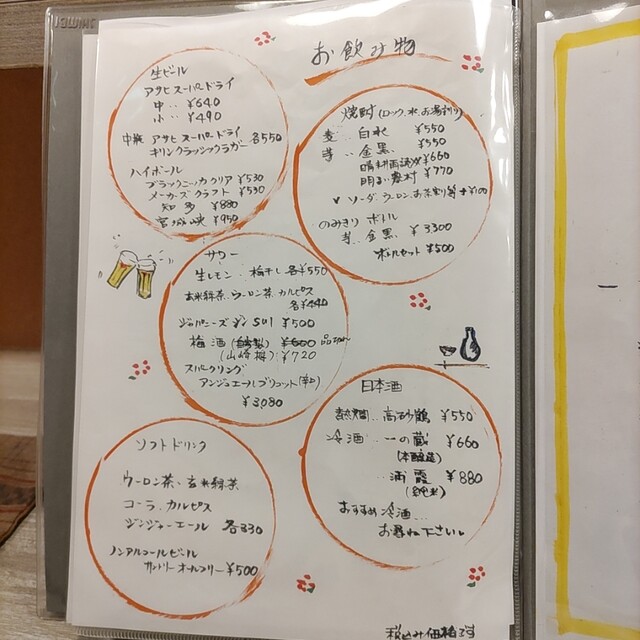 お飲み物
生ビール
アサヒスーパードライ
中 ‥ ¥640
小 ‥ ¥490
中瓶 アサヒスーパードライ 各550
キリンクラシックラガー
ハイボール
ブラックニッカクリア ¥530
メーカーズクラフト ¥530
知多 ¥880
宮城峡 ¥950
焼酎 (ロック、水、お湯割り)
麦 ‥ 白水 ¥550
芋 ‥ 金黒 ¥550
晴耕雨読 ¥660
明るい農村 ¥770
ソーダ、ウーロン、お茶割り等 +¥100
のみきりボトル
芋 ‥ 金黒 ¥3300
ボトルセット ¥500
サワー
生レモン 梅干し 各¥550
玄米緑茶、ウーロン茶、カルピス
各¥440
ジャパニーズジン SUI ¥500
梅酒 (自家製) ¥600 品切れ
(山崎梅) ¥720
スパークリング
アンジュエールブリュット(辛口)
¥3080
日本酒
熱燗 ‥ 高砂鶴 ¥550
冷酒 ‥ 一の蔵 ¥660
(本醸造)
‥ 浦霞 ¥880
(純米)
おすすめ冷酒 ‥
お尋ね下さい。
ソフトドリンク
ウーロン茶、玄米緑茶
コーラ、カルピス
ジンジャーエール 各330
ノンアルコールビール
サントリーオールフリー ¥500
税込み価格です